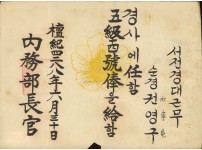 서전경대근무
순경 권영구
경사에 任함
五級四號俸을 給함
檀紀四二八八年八月三十日
內務部長官